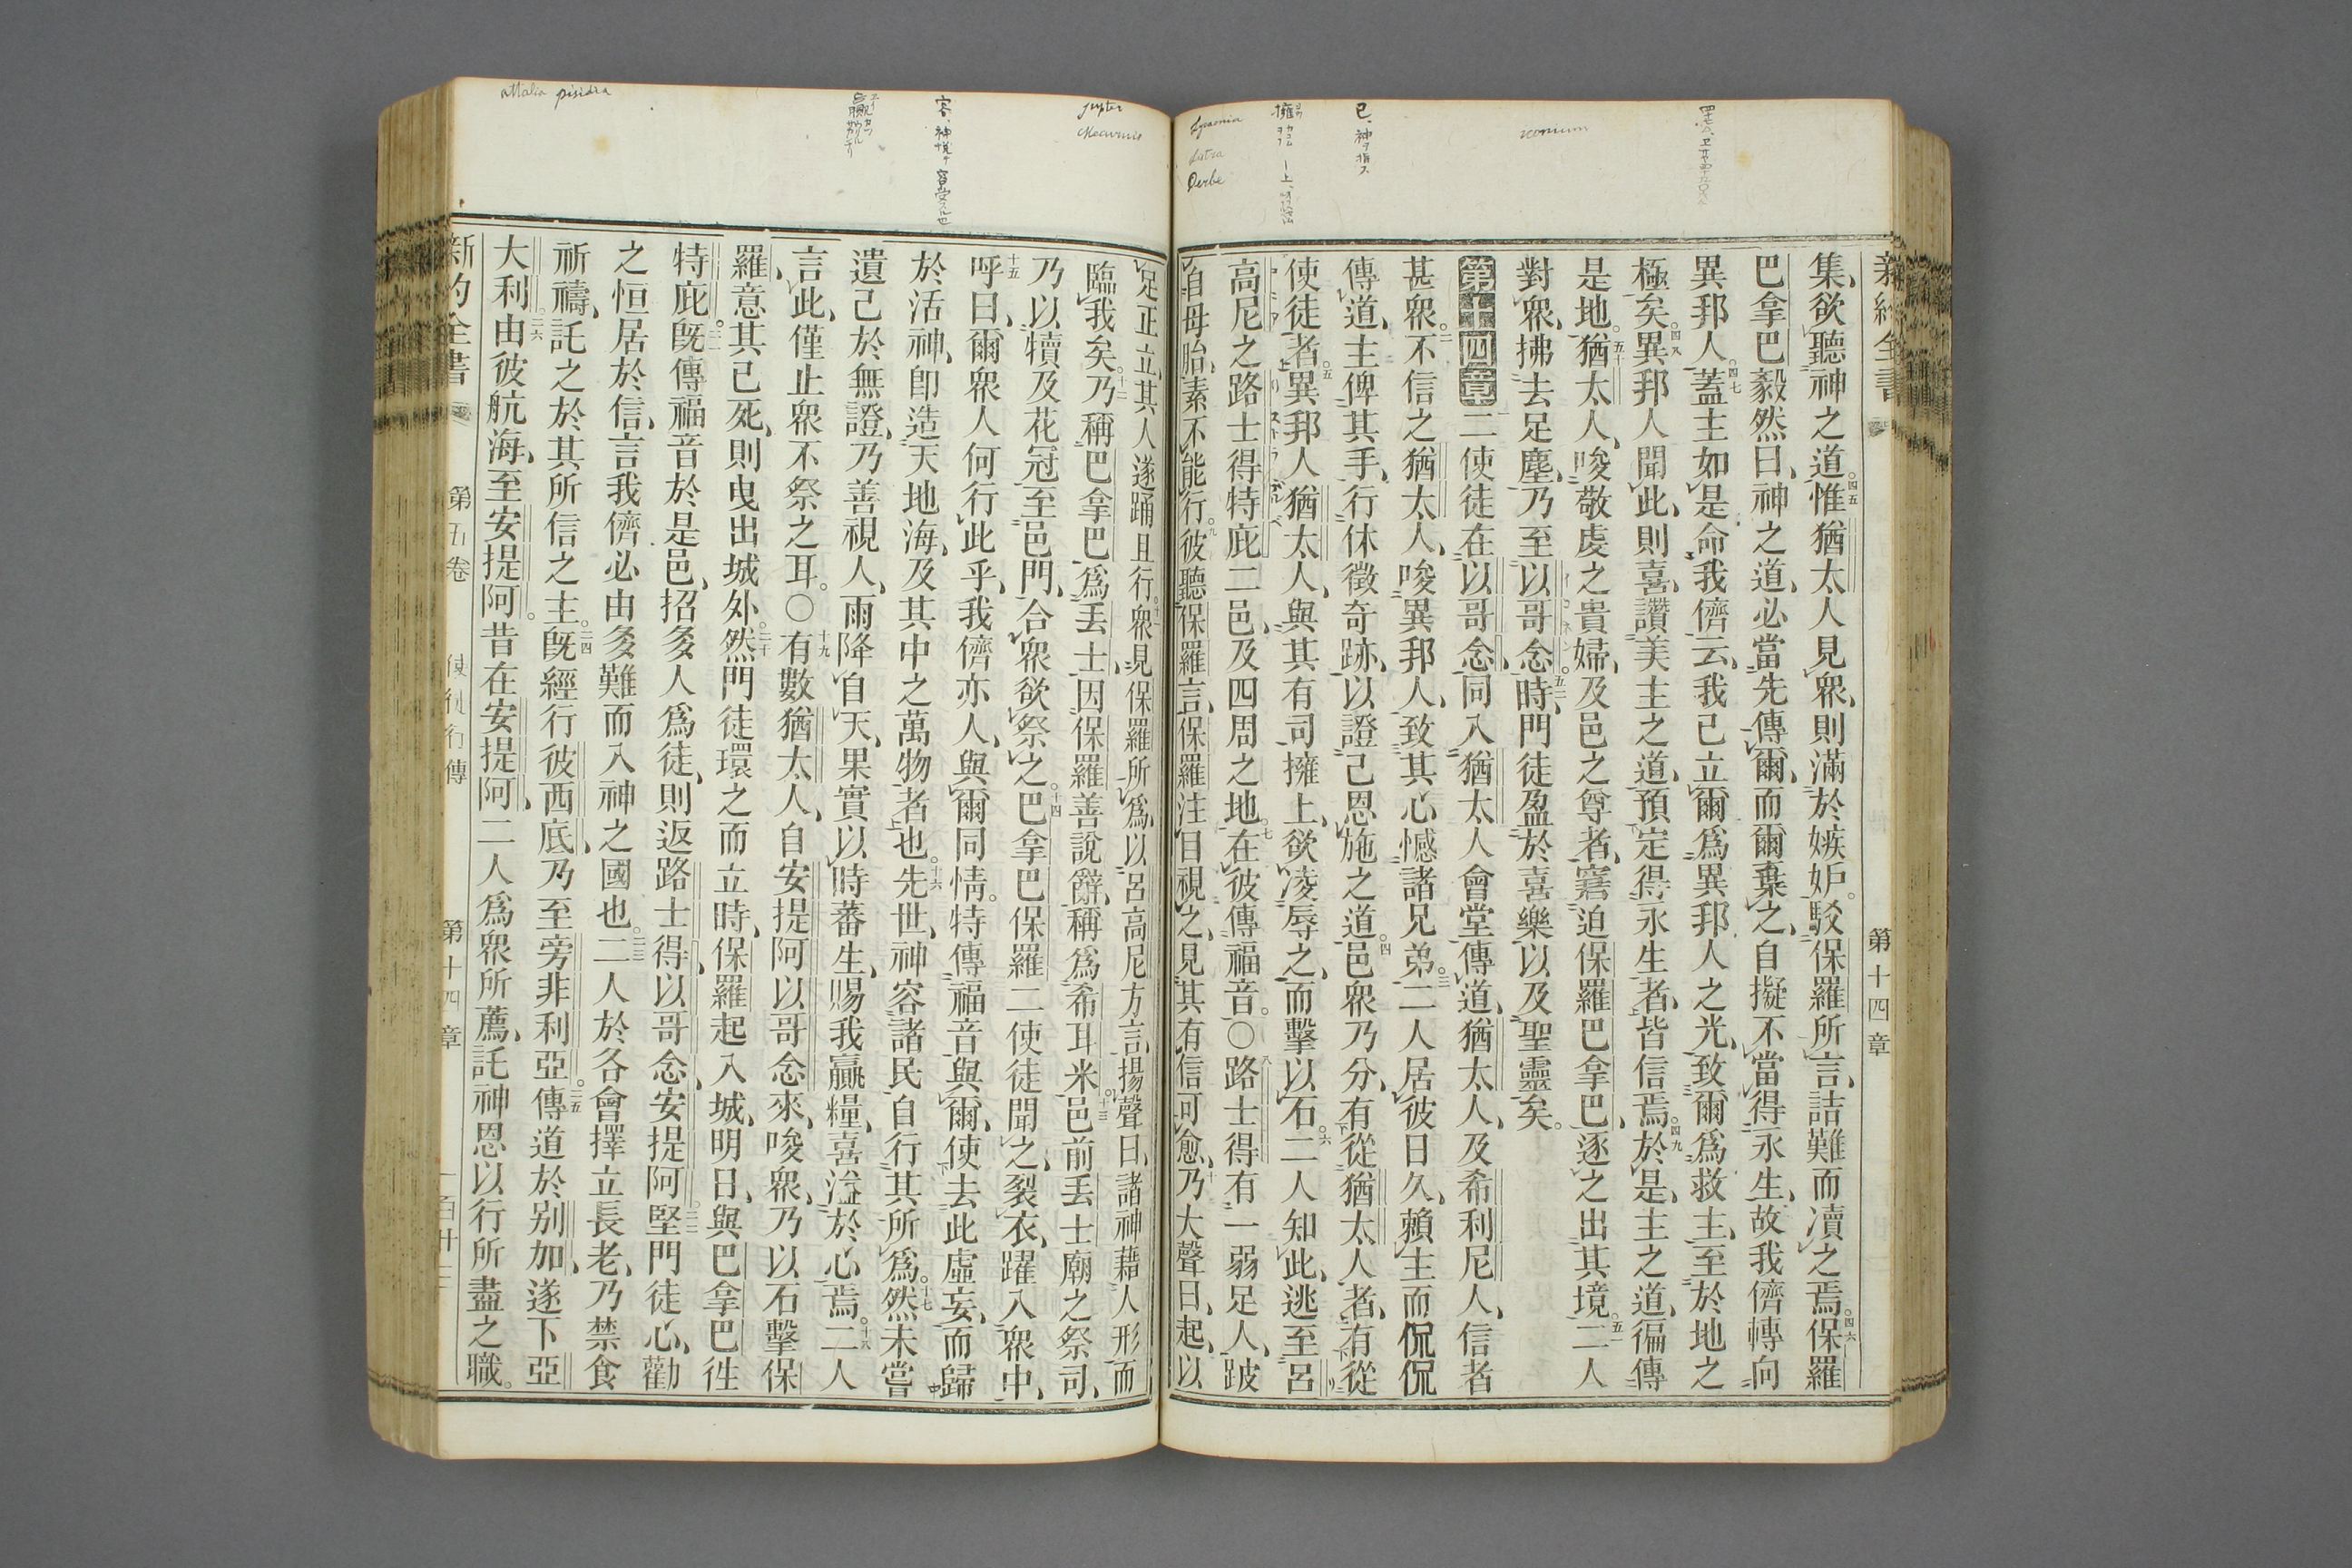 集、欲聽神之道。四五惟猶太人見衆、則滿於嫉妒。駁保羅所言、詰難而凟之焉。四六保羅
巴拿巴毅然曰、神之道、必當先傳爾、而爾棄之、自擬不當得永生、故我儕轉向
異邦人。四七蓋主如是命我儕云、我己立爾爲異邦人之光、致爾爲救主、至於地之
極矣。四八異邦人聞此、則喜、讚美主之道、預定得永生者、皆信焉。四九於是、主之道、徧傳
是地。五十猶太人、唆敬虔之貴婦、及邑之尊者、窘迫保羅巴拿巴、逐之出其境。五一二人
對衆、拂去足塵、乃至以哥念。五二時、門徒盈於喜樂、以及聖靈矣。
第十四章 一二使徒在以哥念、同入猶太人會堂傳道、猶太人、及希利尼人、信者
甚衆。二不信之猶太人、唆異邦人、致其心憾諸兄弟。三二人居彼日久、賴主而侃侃
傳道、主俾其手、行休徵奇跡、以證己恩施之道。四邑衆乃分、有從猶太人者、有從
使徒者。五異邦人猶太人、與其有司擁上、欲凌辱之、而擊以石。六二人知此、逃至呂
高尼之路士得特庇二邑、及四周之地。七在彼傳福音。〇八路士得有一弱足人、跛
自母胎、素不能行。九彼聽保羅言、保羅注目視之、見其有信可愈、十乃大聲曰、起、以
足正立、其人遂踊且行。十一衆見保羅所爲、以呂高尼方言、揚聲曰、諸神藉人形而
臨我矣。十二乃稱巴拿巴爲丟士、因保羅善說辭、稱爲希耳米。十三邑前丟士廟之祭司、
乃以犢及花冠至邑門、合衆欲祭之。十四巴拿巴保羅二使徒聞之、裂衣、躍入衆中、
十五呼曰、爾衆人何行此乎、我儕亦人、與爾同情。特傳福音與爾、使去此虛妄、而歸
於活神、卽造天地海、及其中之萬物者也。十六先世、神容諸民、自行其所爲。十七然未嘗
遺己於無證、乃善視人、雨降自天、果實以時蕃生、賜我贏糧、喜溢於心焉。十八二人
言此、僅止衆不祭之耳。〇十九有數猶太人、自安提阿以哥念來、唆衆、乃以石擊保
羅、意其己死、則曳出城外。二十然門徒環之而立時、保羅起入城、明日、與巴拿巴徃
特庇。二一旣傳福音於是邑、招多人爲徒、則返路士得、以哥念、安提阿。二二堅門徒心、勸
之恒居於信、言我儕必由多難而入神之國也。二三二人於各會擇立長老、乃禁食
祈禱、託之於其所信之主。二四旣經行彼西底、乃至旁非利亞。二五傳道於别加、遂下亞
大利。二六由彼航海、至安提阿。昔在安提阿、二人爲衆所薦、託神恩以行所盡之職。
新約全書 第五卷 使徒行傳 第十四章
新約全書
第十四章
Iconium
已、神ヲ指ス
Derbe
Jupter
Mecurius
容、神悅テ容受スル也
attalia pisidia